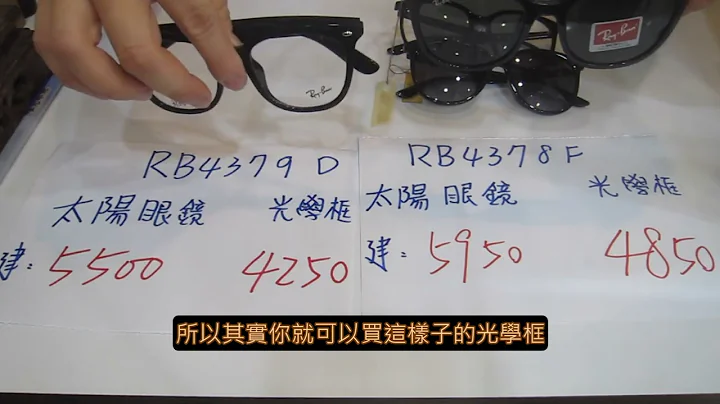 Ray-Ban
Ray-Ban
RB4379 D
太陽眼鏡 光學框
建: 5500 4250
RB4378 F
太陽眼鏡 光學框
建: 5950 4850
所以其實你就可以買這樣子的光學框